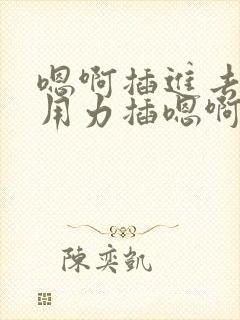 嗯啊插进去
用力插嗯啊
陈奕凯